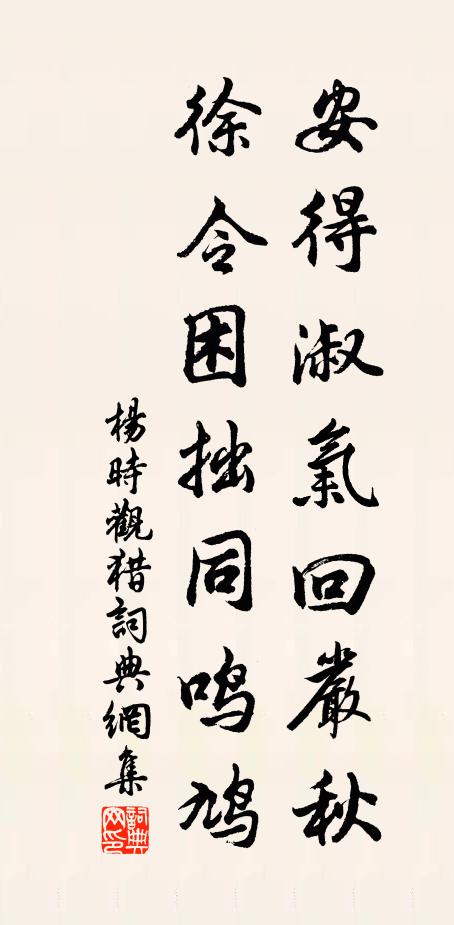 安得淑氣回嚴秋
徐令困拙同鸣鸠
楊時觀猎詞典網集
詞典网印